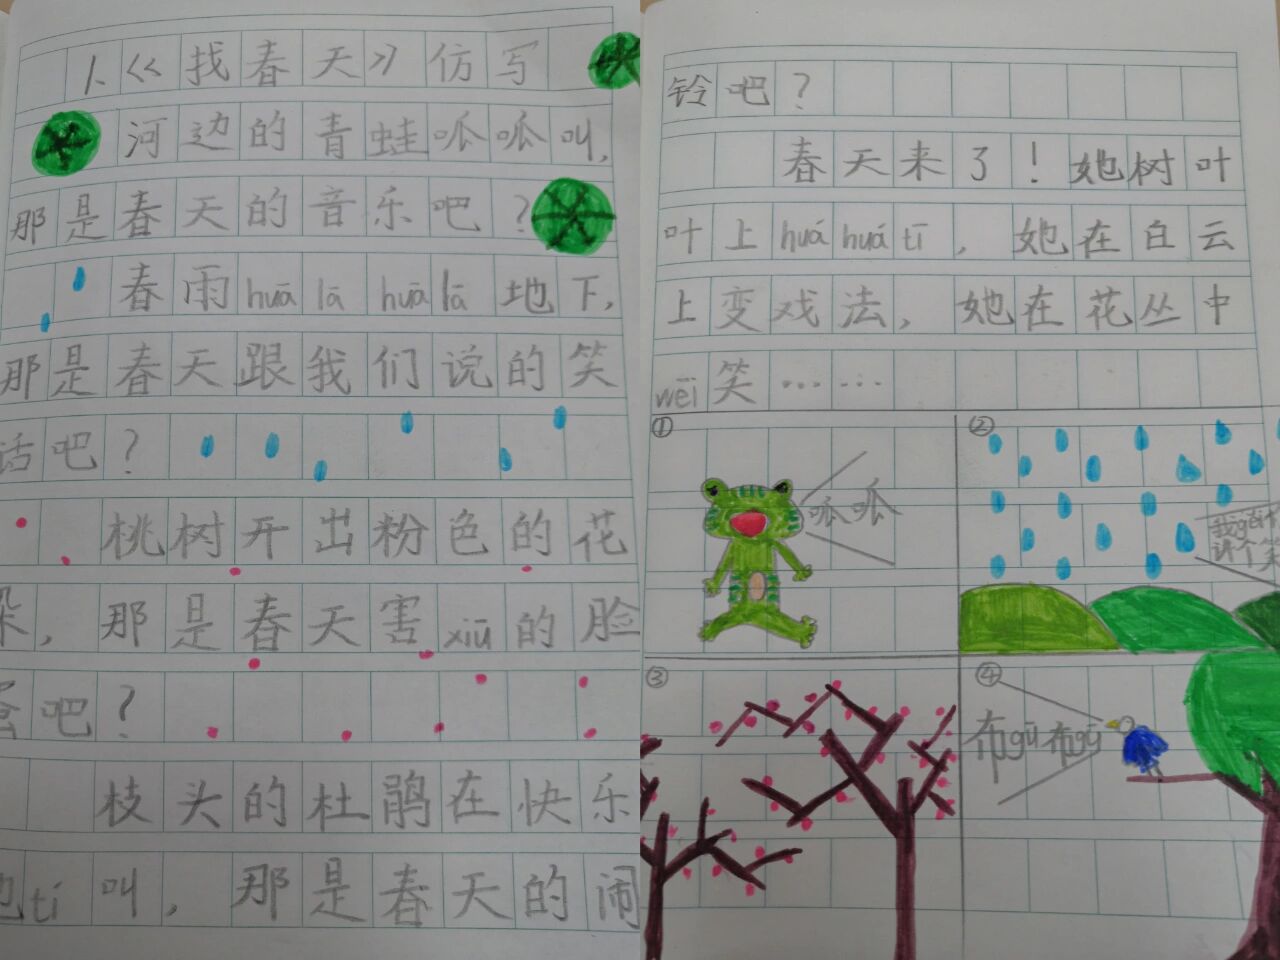 1、《找春天》仿写
河边的青蛙呱呱叫,
那是春天的音乐吧?
春雨huālāhuālā地下,
那是春天跟我们说的笑
话吧?
桃树开出粉色的花
朵,那是春天害xiū的脸
吧?
枝头的杜鹃在快乐
地tí叫,那是春天的闹
铃吧?
春天来了!她树叶
叶上huáhuátī,她在白云
上变戏法,她在花丛中
wēi笑……
①
呱呱
②
我gěi
讲个笑
③
④
布gǔ布gǔ